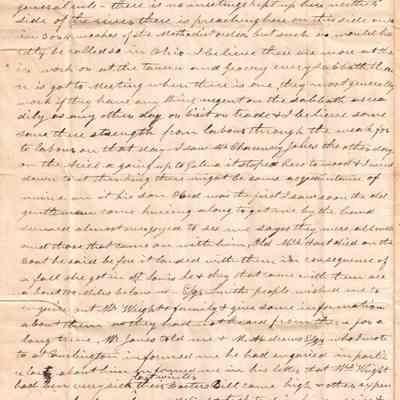 general rule - there is no meeting kept up here neither
side of the river there is preaching here on this side once
in 3 or 4 weakes of the Methodist order but such as would ha
rdly be called so in Ohio I believe there are more at the
ir work or at the tavern and grocery every Sabbath than
is got to Meeting when there is one, they most generally
work if they have any thing urgent on the Sabbath as rea
dily as any other day, or visit or trade & I believe some
save there strength from labour through the weak for
to labour on that day I saw Mr Chauncey Jakes the other day
on the a going up to Galena it stoped here to wood & I went
down to it thinking there might be some acquaintance of
mine on it his son was the first I saw soon the old
gentleman came huring along to get me by the hand
almost overjoyed to see me sayes they were all well
and those that came on with him, Old Mrs Hart died on the
boat he said before it landed with them in consequence of
a fall she got in St Louis he & they that came with them are
about miles below us - people wished me to
enquire out Mr Wright & family & give some information
about them as they had not heard from them for a
long time. Mr Jones told me & Mr Andrews who wrote
to at Burlington informed me he had enquired in parti
cular about him informed me in his letter that Mrs Wright
last winter
had been very sick their Doctors Bill came high & other expen